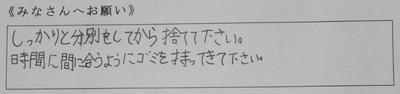 《みなさんへお願い》
しっかりと分別をしてから捨てて下さい。
時間に間に合うようにゴミを持ってきて下さい。